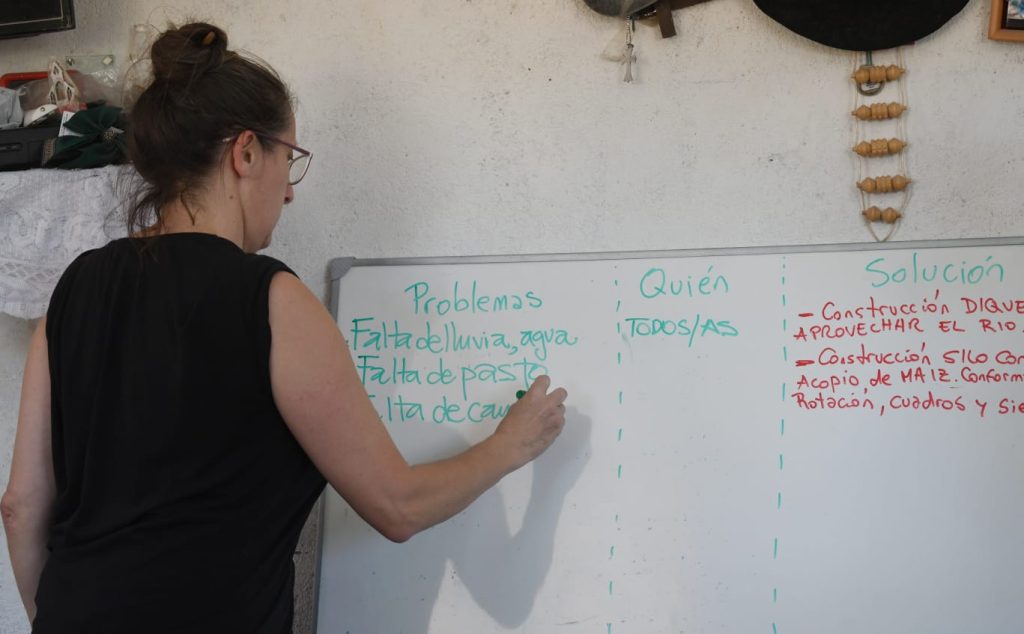 Problemas
Falta de lluvia, agua
Falta de pasto
Falta de
Quién
TODOS/AS
Solución
- Construcción DIQUE
APROVECHAR EL RIO.
- Construcción SILO
Acopio, de MAIZ.
Rotación, cuadros y